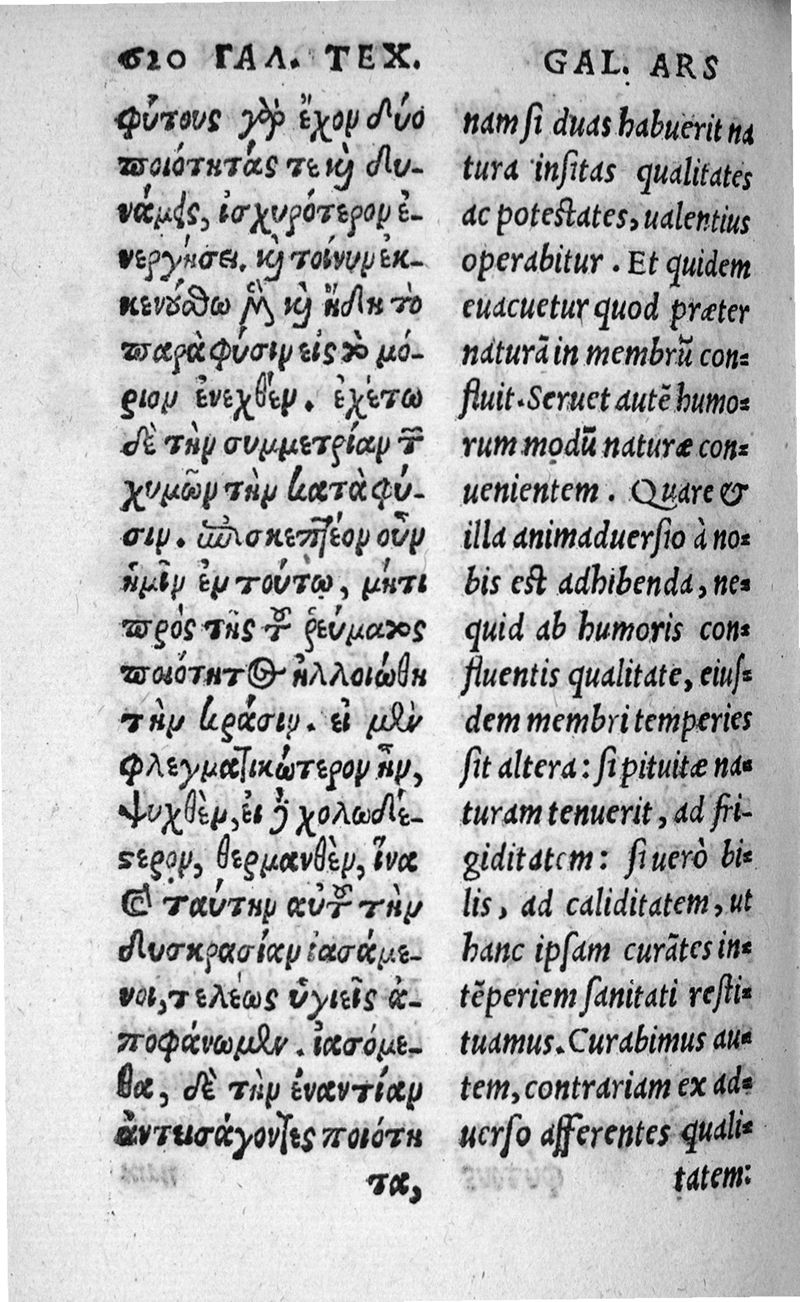 ΓΑΛ. ΤΕΧ.
φύτους γὰρ ἔχον δύο
ποιότητάς τε καὶ δυ-
νάμεις, ἰσχυρότερον ἐ-
νεργήσει. καὶ τοίνυν ἐκ-
κενούσθω μὲν καὶ ἤδη τὸ
παρὰ φύσιν εἰς τὸ μό-
ριον ἐνεχθέν. ἐχέτω
δὲ τὴν συμμετρίαν τῶν
χυμῶν τὴν κατὰ φύ-
σιν. ἐπισκεπτέον οὖν
ἡμῖν ἐν τούτῳ, μήτι
πρὸς τῆς τοῦ ῥεύματος
ποιότητος ἠλλοιώθη
τὴν κράσιν. εἰ μὲν
φλεγματικώτερον ἦν,
ψυχθὲν, εἰ δὲ χολωδέ-
στερον, θερμανθὲν, ἵνα
καὶ ταύτην αὐτοῦ τὴν
δυσκρασίαν ἰασάμε-
νοι, τελέως ὑγιεῖς ἀ-
ποφάνωμεν. ἰασόμε-
θα, δὲ τὴν ἐναντίαν
ἀντεισάγοντες ποιότη
τα,
GAL. ARS
nam si duas habuerit na
tura insitas qualitates
ac potestates, ualentius
operabitur. Et quidem
euacuetur quod præter
naturã in membrũ con-
fluit. Seruet autẽ humo-
rum modũ naturæ con-
uenientem. Quare &
illa animaduersio à no-
bis est adhibenda, ne-
quid ab humoris con-
fluentis qualitate, eius-
dem membri temperies
sit altera: si pituitæ na-
turam tenuerit, ad fri-
giditatem: si uerò bi-
lis, ad caliditatem, ut
hanc ipsam curãtes in-
tẽperiem sanitati resti-
tuamus. Curabimus au-
tem, contrariam ex ad-
uerso afferentes quali-
tatem: